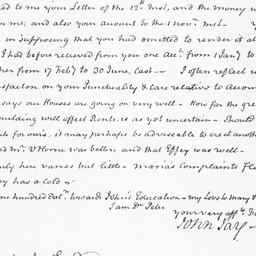 ed to me your Letter of the 12th Inst, and the money w
me; and also your account to the 1 Novr Inst—
in supposing that you had omitted to render it al
I had before received from you one acct. from 1 Jany to
her from 17 Feby to 30 June, last— I often reflect w
satisfaction on your Punctuality & Care relative to accoun
says our Houses are going on very well— How far the gre
building will affect Rents, is as yet uncertain— Should
ble for ours, it may perhaps be adviseable to erect anoth
ad Mr. V Horne was better, and that Effey was well—
ily here varies but little— Maria's complaints Fl
ey has a cold—
ne hundred Dolrs. towards John's Education— my Love to Mary &
I am Dr Peter
your very affte. Br
John Jay—